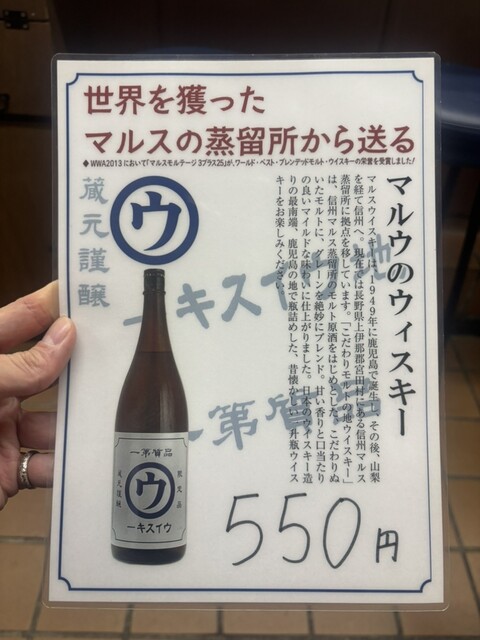 世界を獲った
マルスの蒸留所から送る
◆WWA2013において「マルスモルテージ 3プラス25」が、ワールド・ベスト・ブレンデッドモルト・ウイスキーの栄誉を受賞しました!
マルウのウィスキー
マルスウイスキーは、1949年に鹿児島で誕生し、その後、山梨
を経て信州へ。現在では長野県上伊那郡宮田村にある信州マルス
蒸留所に拠点を移しています。「こだわりモルトの地ウイスキー」
は、信州マルス蒸留所のモルト原酒をはじめとした、こだわりぬ
いたモルトに、グレーンを絶妙にブレンド。甘い香りと口当たり
の良いマイルドな味わいに仕上がりました。日本のウイスキー造
りの最南端、鹿児島の地で瓶詰めした、昔懐かしい一升瓶ウイス
キーをお楽しみください。
蔵元謹醸
ウ
地
ーキスイウ
一第質品
一第質品
蔵元謹醸
ウ
ーキスイウ
550円